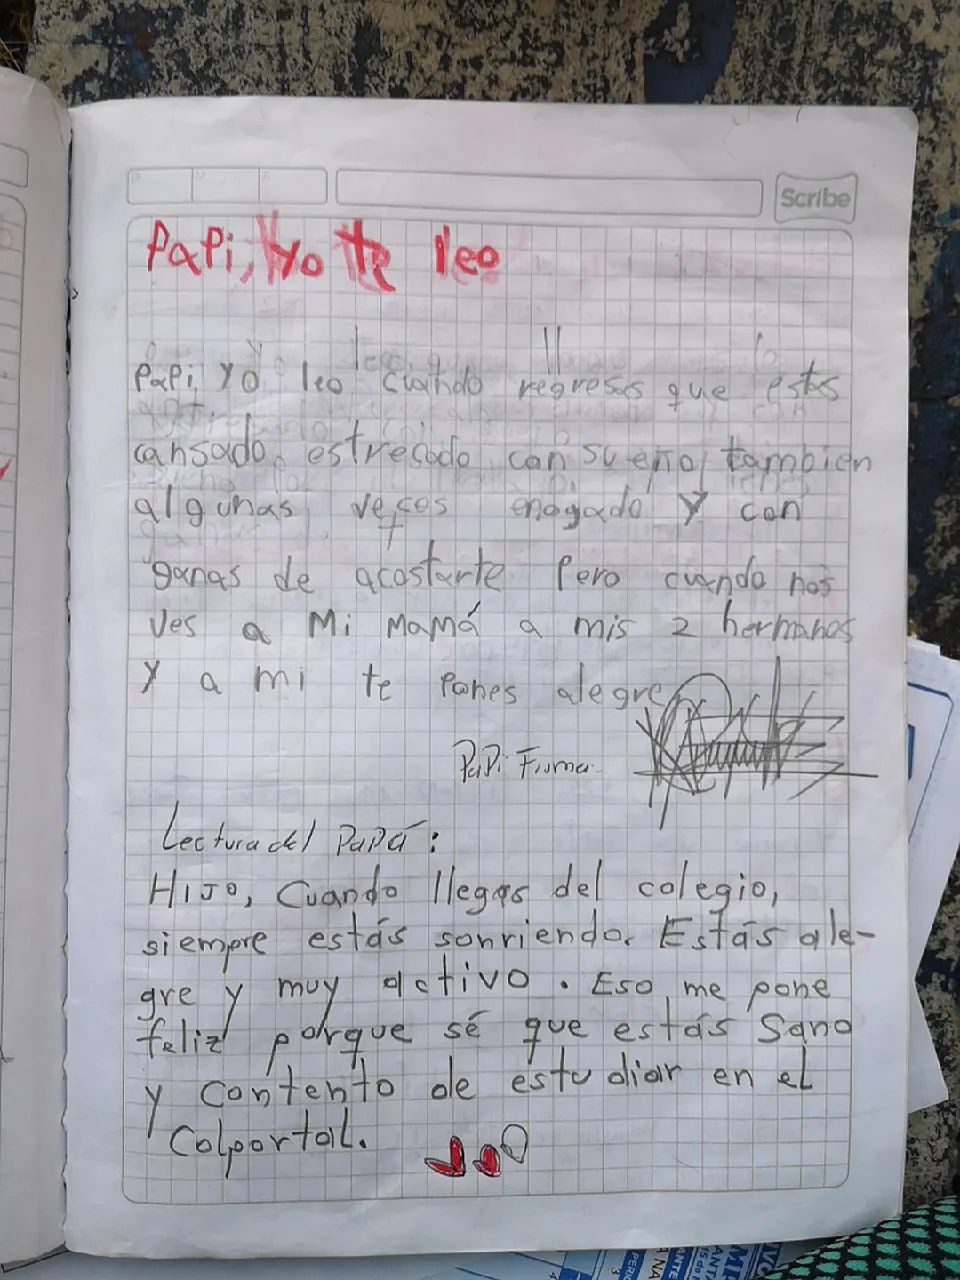 Scribe
Papi, yo te leo
Papi, yo leo cuando regresas que estas
cansado, estresado con sueño, también
algunas veces enogado y con
ganas de acostarte Pero cuando nos
ves a Mi Mamá a mis 2 hermanos
Y a mi te Pones alegre
PaPi Firma.
Lectura del PaPá:
HIJO, Cuando llegas del colegio,
siempre estás sonriendo. Estás ale-
gre y muy activo. Eso me pone
feliz porque sé que estás Sano
y Contento de estudiar en el
Colportal.